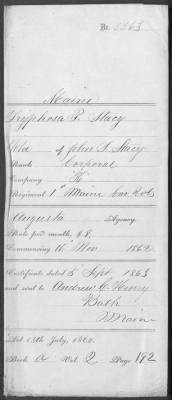 No. 5363
Maine
Tryphosa P. Stacy
Wid of John S. Stacy
Rank Corporal
Company K
Regiment 1st Maine Cav Vols
Augusta Agency.
Rate per month, $8.
Commencing 16 Nov 1862
Certificate dated 5 Sept. 1863
and sent to Andrew C. Henry
Bath
Maine
Act 14th July, 1862.
Book A Vol. 2 Page 192